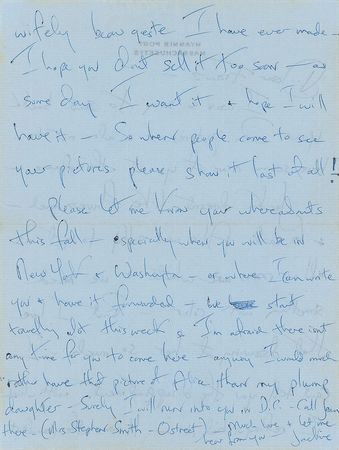 wifely beau geste I have ever made -
I hope you don't sell it too soon - as
some day I want it & hope I will
have it - So when people come to see
your pictures please show it last of all!
please let me know your whereabouts
this fall - especially when you will be in
New York & Washington - or where I can write
you & have it forwarded - we start
travelling alot this week so I'm afraid there isnt
any time for you to come here - anyway I would much
rather have that picture of Alice than my plump
daughter - Surely I will run into you in D.C. - Call
there - (Mrs Stephen Smith - O street) - much love & let me
hear from you -
HYANNIS PORT
MASSACHUSETTS